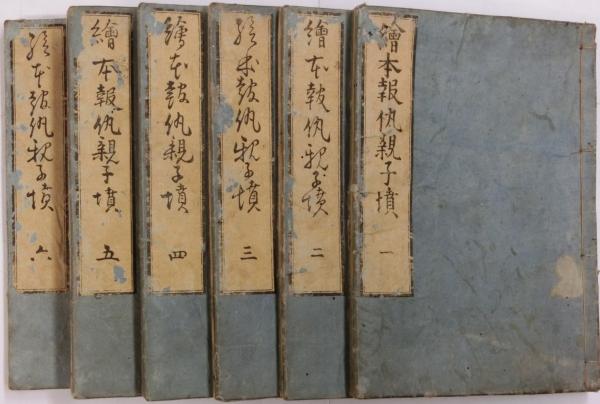 繪本報仇親子墳 一
繪本報仇親子墳 二
繪本報仇親子墳 三
繪本報仇親子墳 四
繪本報仇親子墳 五
繪本報仇親子墳 六